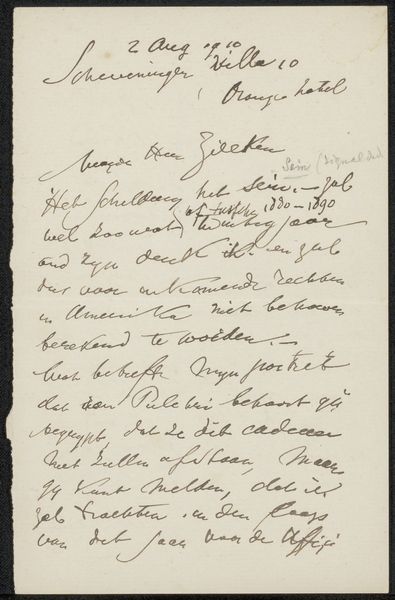 2 Aug 1910
Scheveningen Villa 10
Oranje hotel
Waarde Heer Zilcken
Sein (signal
Het Schilderij het sein. — zal
of tusschen 1880-1890
wel zoowat twintig jaar
oud zyn denk ik. en zal
dus voor inkomende rechten
in Amerika niet behoeven
berekend te worden. —
Wat betreft myn portret
dat aan Pulchri behoort gy
begrypt, dat ze dit cadeau
niet zullen afstaan, maar
gy kunt melden, dat ik
zal trachten in den loop
van dit jaar voor de Uffizi